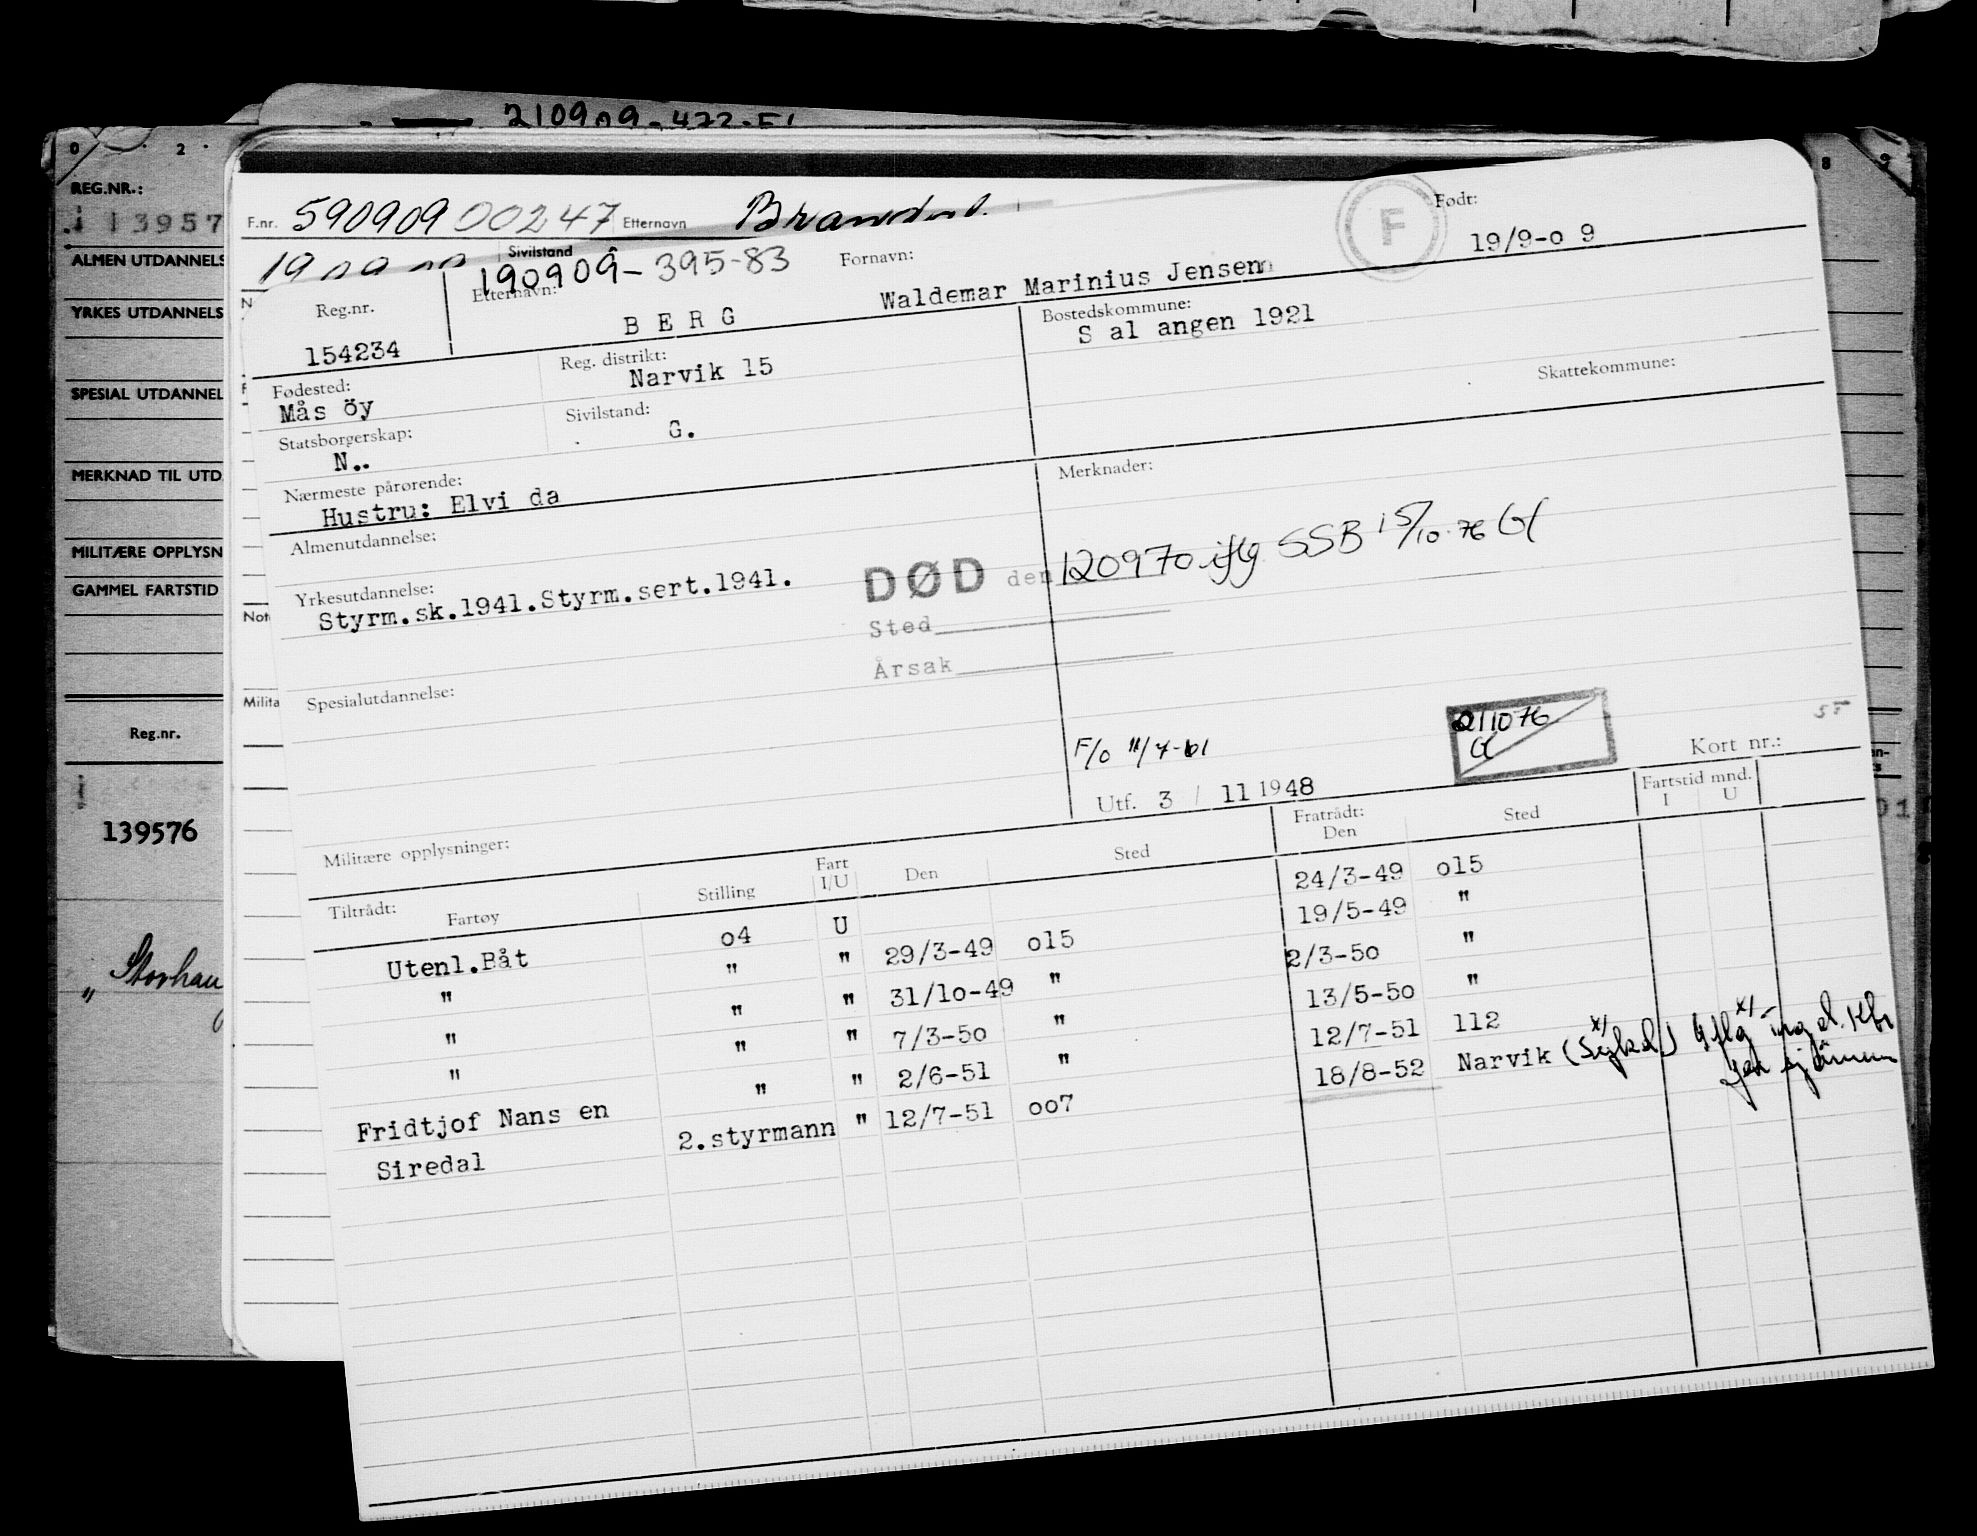 210909-472-51
0 2
8 9
REG.NR.:
13957
ALMEN UTDANNELS
YRKES UTDANNELS
SPESIAL UTDANNEL
MERKNAD TIL UTD
MILITÆRE OPPLYSN
GAMMEL FARTSTID
Reg.nr.
139576
" Storhau
F.nr. 590909 00247 Etternavn
Sivilstand
190909-395-83
Not
Milita
F
Født:
19/9-o 9
Reg.nr.
154234
Etternavn:
B E R G
Fornavn:
Waldemar Marinius Jensen
Fødested:
Mås öy
Reg. distrikt:
Narvik 15
Bostedskommune:
S al angen 1921
Skattekommune:
Statsborgerskap:
N..
Sivilstand:
G.
Nærmeste pårørende:
Hustru: Elvi da
Merknader:
Almenutdannelse:
Yrkesutdannelse:
Styrm.sk.1941.Styrm.sert.1941.
DØD den 120970 iflg. SSB 15/10.76 Gf
Sted
Årsak
Spesialutdannelse:
F/o 11/7-61
211076
Utf. 3 / 11 1948
Kort nr.:
Militære opplysninger:
Tiltrådt:
Fartøy
Stilling
Fart
I/U
Den
Sted
Fratrådt:
Den
Sted
Fartstid mnd.
I U
Utenl.Båt o4 U 24/3-49 o15
" " " 29/3-49 o15 19/5-49 "
" " " 31/10-49 " 2/3-50 "
" " " 7/3-50 " 13/5-50 "
Fridtjof Nans en " " 2/6-51 " 12/7-51 112
Siredal 2.styrmann " 12/7-51 oo7 18/8-52 Narvik (Sykd.)